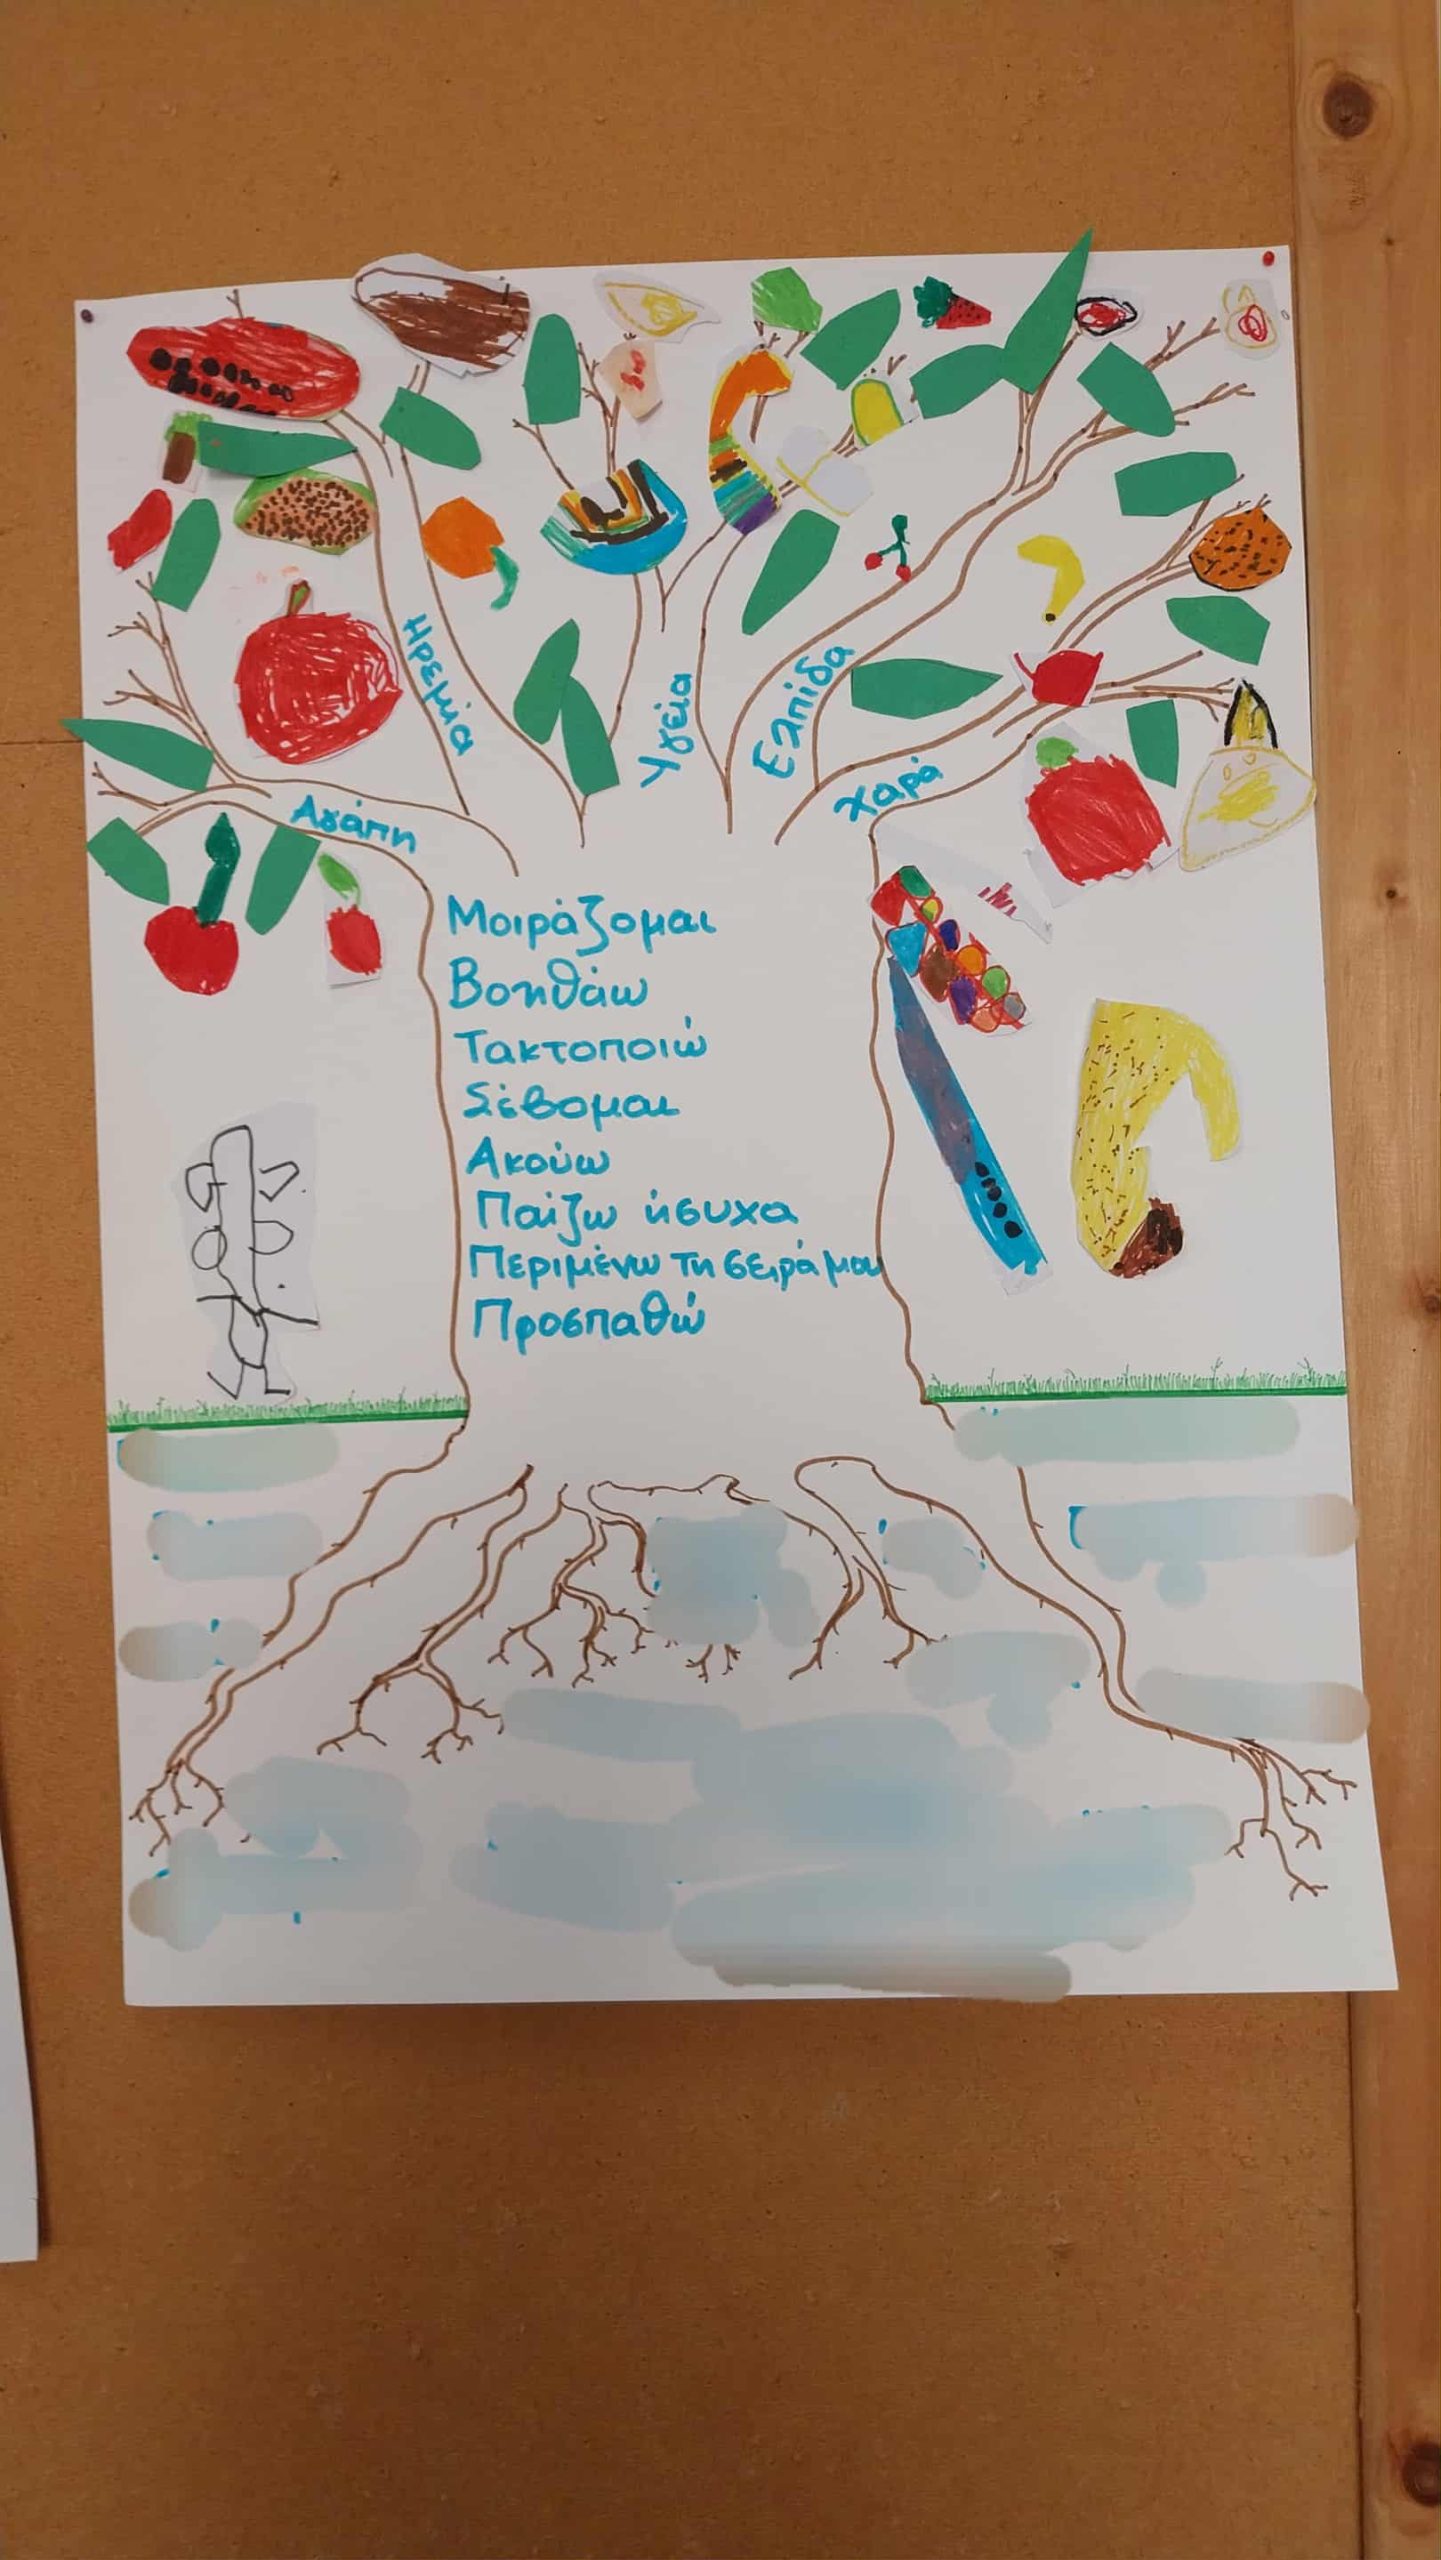 Αγάπη
Ηρεμία
Υγεία
Ελπίδα
Χαρά
Μοιράζομαι
Βοηθάω
Τακτοποιώ
Σέβομαι
Ακούω
Παίζω ήσυχα
Περιμένω τη σειρά μου
Προσπαθώ